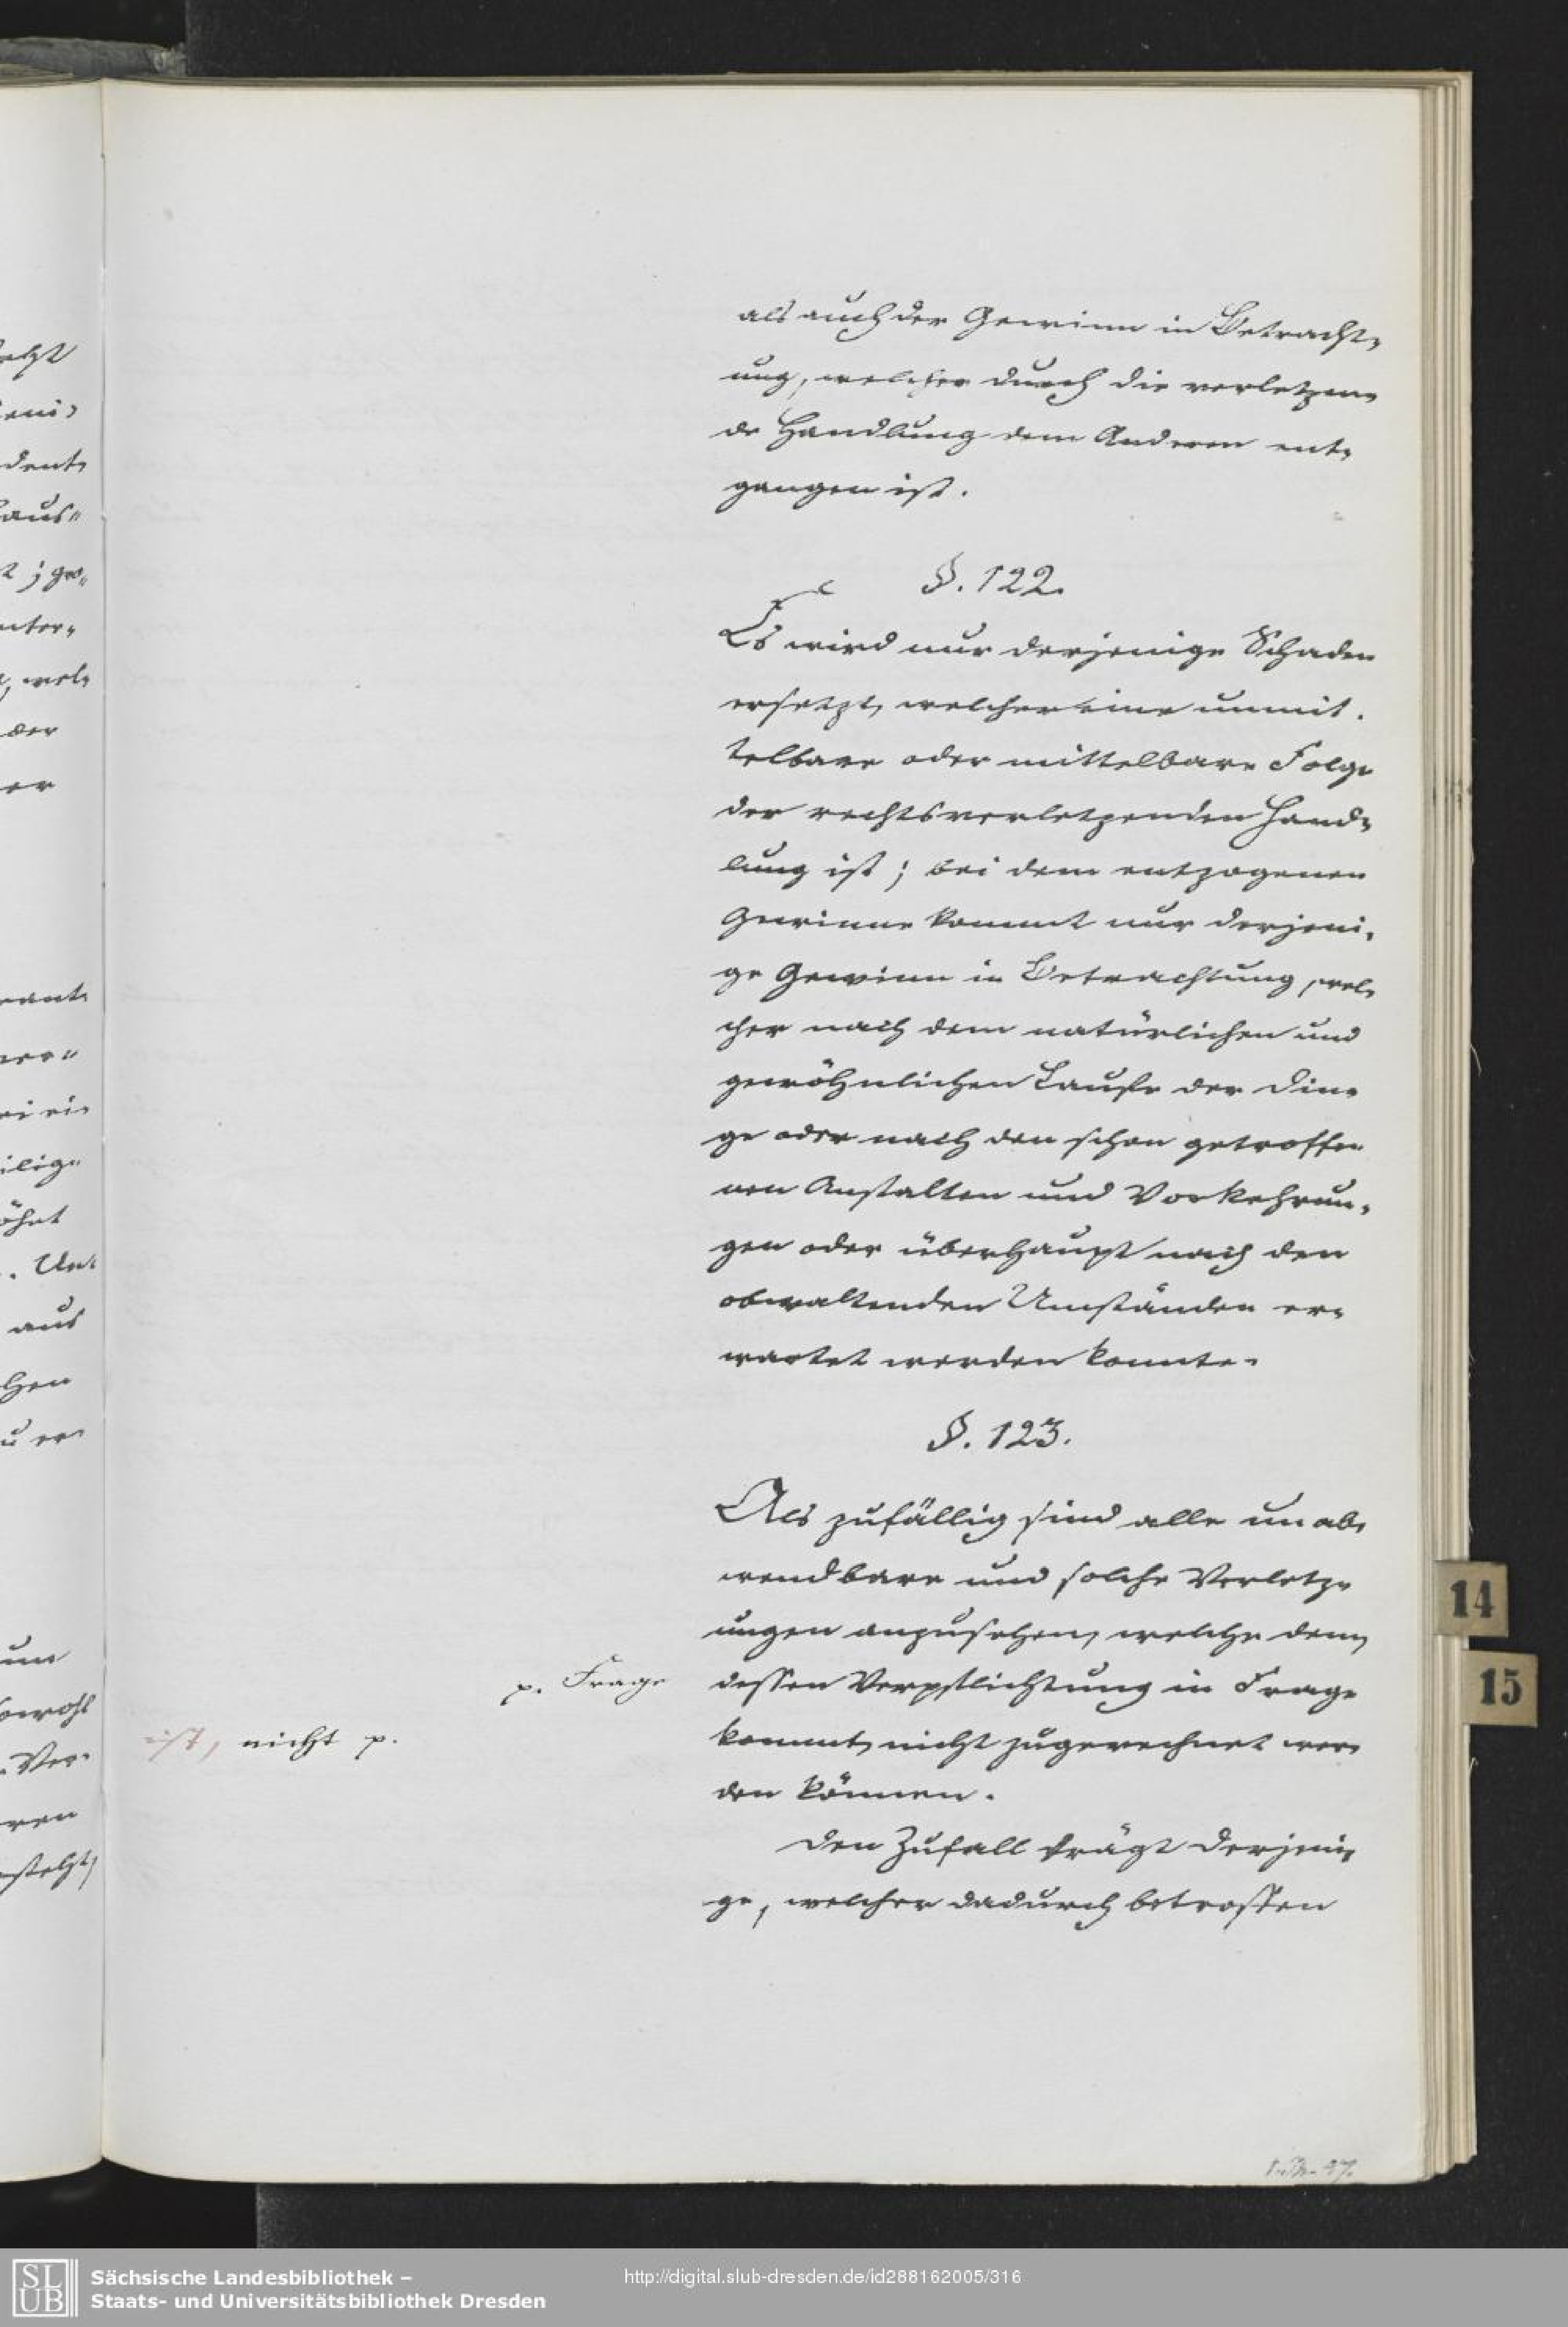 als auch der Gewinn in Betracht-
ung, welcher durch die verletzen-
de Handlung dem Anderen ent-
gangen ist.
§. 122.
Es wird nur derjenige Schaden
ersetzt, welcher eine unmit-
telbare oder mittelbare Folge
der rechtsverletzenden Hand-
lung ist; bei dem entzogenen
Gewinne kommt nur derjeni-
ge Gewinn in Betrachtung, wel-
cher nach dem natürlichen und
gewöhnlichen Laufe der Din-
ge oder nach den schon getroffe-
nen Anstalten und Vorkehrun-
gen oder überhaupt nach den
obwaltenden Umständen er-
wartet werden konnte.
§. 123.
Als zufällig sind alle unab-
wendbare und solche Verletz-
ungen anzusehen, welche dem,
dessen Verpflichtung in Frage
kommt, nicht zugerechnet wer-
den können.
Den Zufall trägt derjeni-
ge, welcher dadurch betroffen
p. Frage
ist, nicht p.
14
15
SLUB
Sächsische Landesbibliothek –
Staats- und Universitätsbibliothek Dresden
http://digital.slub-dresden.de/id288162005/316